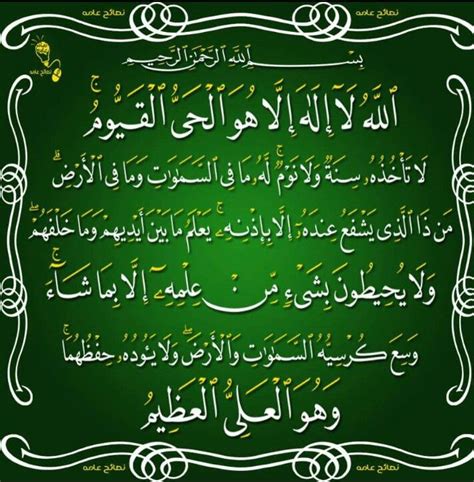 نصائح عامه
نصائح عامه
نصائح عامه
بِسْمِ ٱللَّهِ ٱلرَّحْمَٰنِ ٱلرَّحِيمِ
ٱللَّهُ لَآ إِلَٰهَ إِلَّا هُوَ ٱلْحَىُّ ٱلْقَيُّومُ ۚ
لَا تَأْخُذُهُۥ سِنَةٌ وَلَا نَوْمٌ ۚ لَّهُۥ مَا فِى ٱلسَّمَٰوَٰتِ وَمَا فِى ٱلْأَرْضِ ۗ
مَن ذَا ٱلَّذِى يَشْفَعُ عِندَهُۥٓ إِلَّا بِإِذْنِهِۦ ۚ يَعْلَمُ مَا بَيْنَ أَيْدِيهِمْ وَمَا خَلْفَهُمْ ۖ
وَلَا يُحِيطُونَ بِشَىْءٍ مِّنْ عِلْمِهِۦٓ إِلَّا بِمَا شَآءَ ۚ
وَسِعَ كُرْسِيُّهُ ٱلسَّمَٰوَٰتِ وَٱلْأَرْضَ ۖ وَلَا يَـُٔودُهُۥ حِفْظُهُمَا ۚ
وَهُوَ ٱلْعَلِىُّ ٱلْعَظِيمُ
نصائح عامه
نصائح عامه